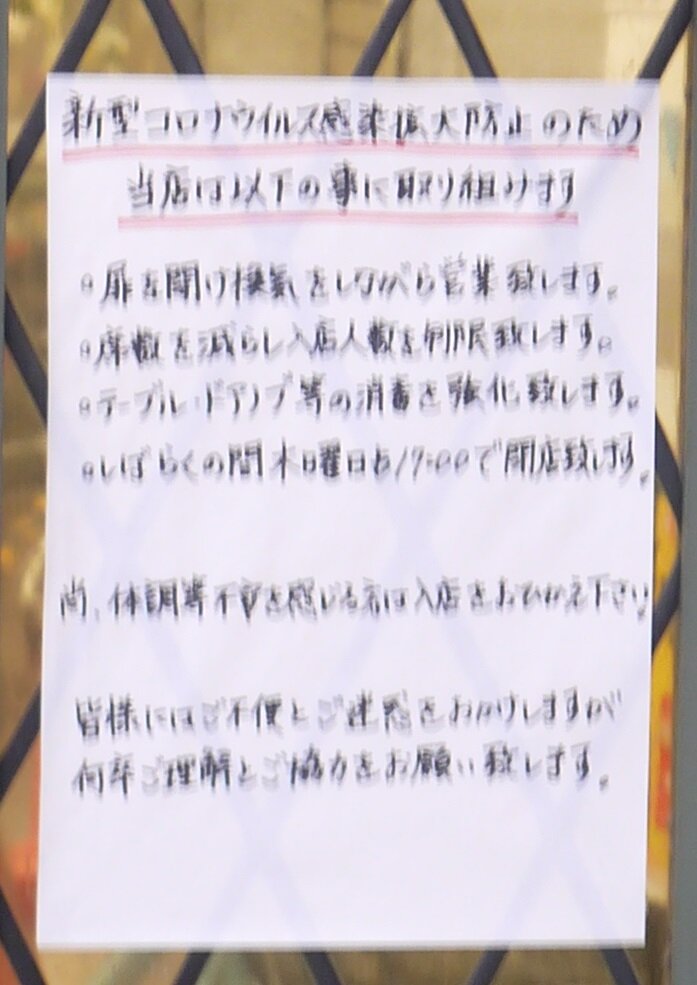 新型コロナウイルス感染拡大防止のため
当店は以下の事に取り組みます
◦扉を開け換気をしながら営業致します。
◦席数を減らし入店人数を制限致します。
◦テーブル・ドアノブ等の消毒を強化致します。
◦しばらくの間木曜日は17:00で閉店致します。
尚、体調等不安を感じる方は入店をおひかえ下さい
皆様にはご不便とご迷惑をおかけしますが
何卒ご理解とご協力をお願い致します。